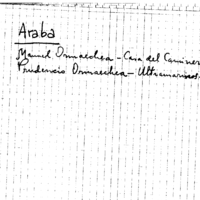 Araba
Manuel Ormaechea - Casa del Caminero
Prudencio Ormaechea - Ultramarinos